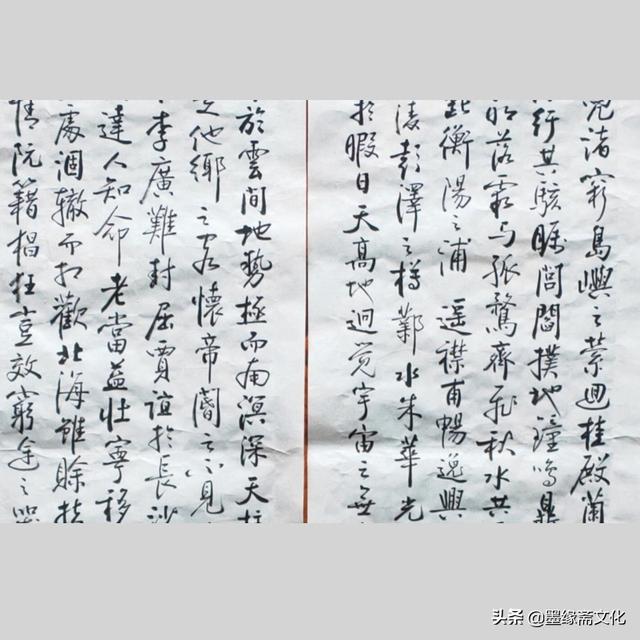 渚窮島嶼之縈迴桂殿蘭
其駭矚閭閻撲地鐘鳴鼎
明落霞与孤鶩齊飛秋水共
點衡陽之浦遥襟甫暢逸興
凌彭澤之樽鄴水朱華光
於暇日天高地迥觉宇宙之無
於雲間地勢極而南溟深天柱
他鄉之客懷帝閽之不見
李廣難封屈賈誼於長沙
達人知命老當益壯寧移
處涸轍而相歡北海雖賒扶
情阮籍猖狂豈效窮途之哭
头条 @墨缘斋文化